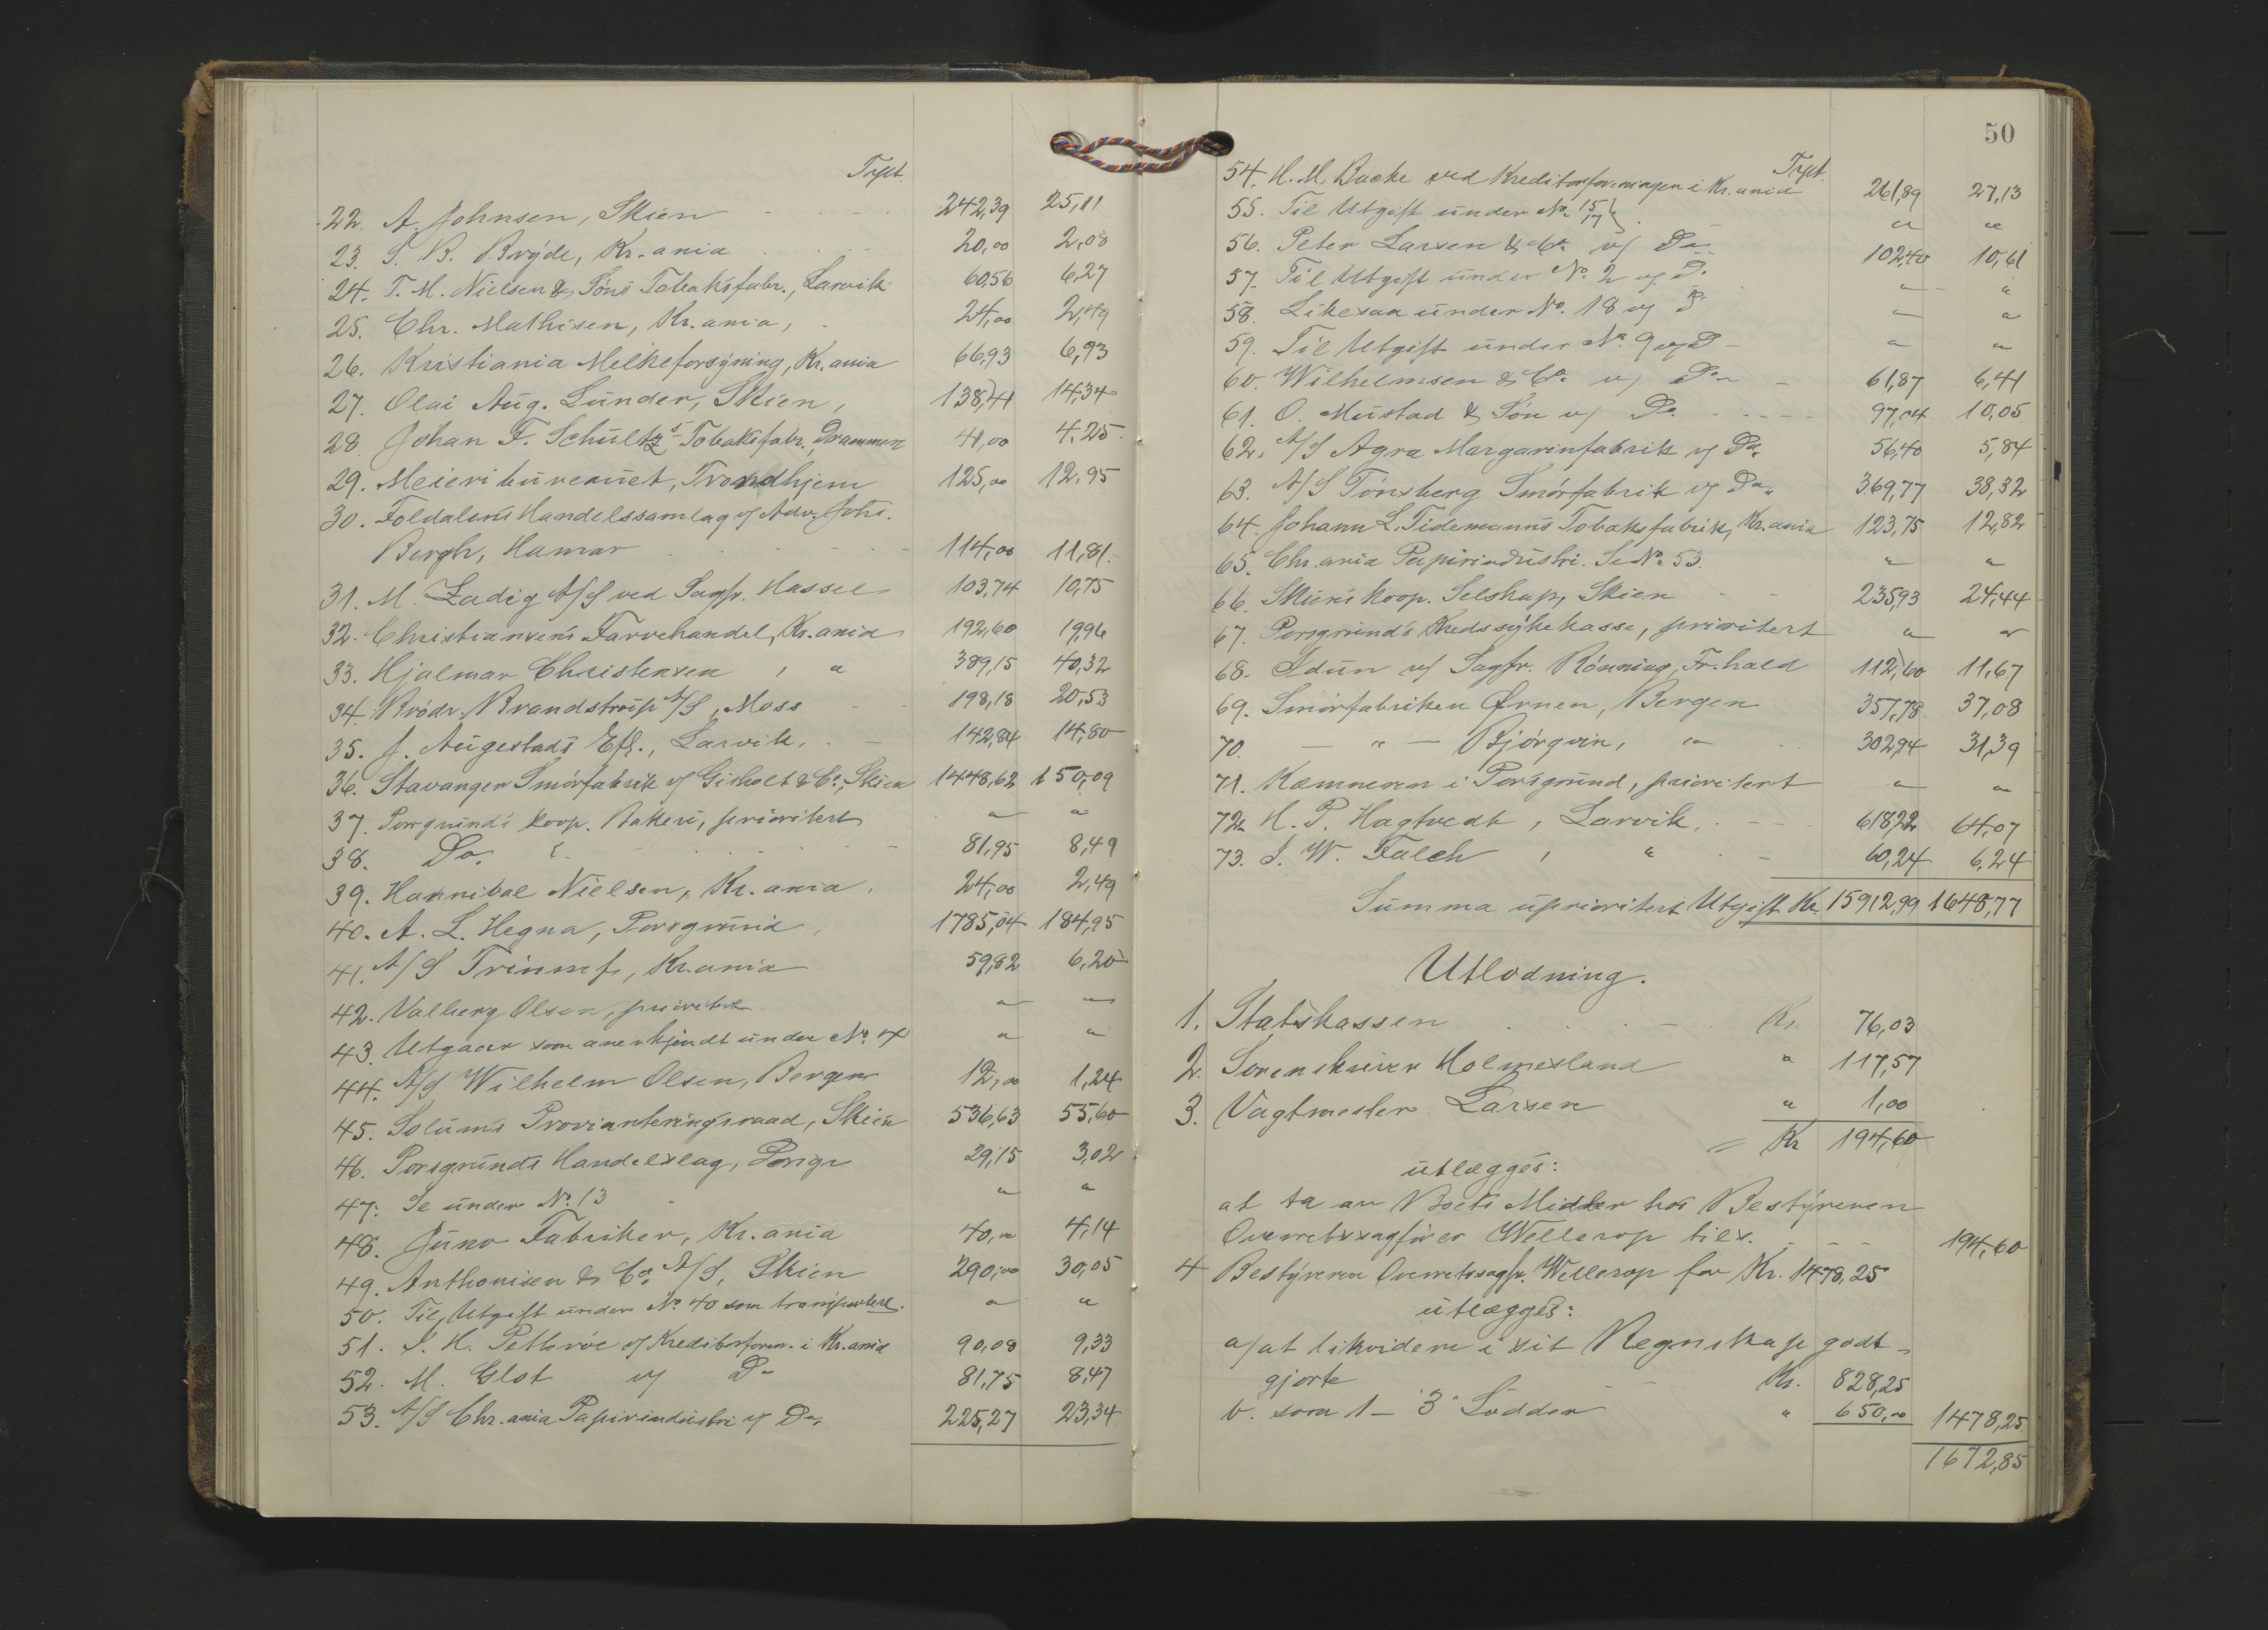 Trpt.
22. A. Johnsen, Skien 242,39 25,11
23. S. B. Bryde, Kr.ania 20,00 2,08
24. T. M. Nielsen & Søns Tobaksfabr., Larvik 60,56 6,27
25. Chr. Mathisen, Kr.ania, 24,00 2,49
26. Kristiania Melkeforsyning, Kr.ania 66,93 6,93
27. Olai Aug. Lunder, Skien, 138,41 14,34
28. Johan F. Schultz's Tobaksfabr., Drammen 41,00 4,25
29. Meieribureauet, Trondhjem 125,00 12,95
30. Foldalens Handelssamlag v/ Adv. Johs.
Bergh, Hamar 114,00 11,81
31. M. Zadig A/S ved Sagfr. Hassel 103,74 10,75
32. Christiansens Farvehandel, Kr.ania 192,60 19,96
33. Hjalmar Christensen , " 389,15 40,32
34. Brødr. Brandstrup A/S, Moss 198,18 20,53
35. J. Augestads Eft., Larvik, 142,84 14,80
36. Stavanger Smørfabrik v/ Gisholt & Co., Skien 1448,62 150,09
37. Porsgrunds koop. Bakeri, prioritert " "
38. Do. 81,95 8,49
39. Hannibal Nielsen, Kr.ania, 24,00 2,49
40. A. L. Hegna, Porsgrund, 1785,04 184,95
41. A/S Triumf, Kr.ania 59,82 6,20
42. Valberg Olsen, prioritert " "
43. Utgaar som anerkjendt under No. 4 " "
44. A/S Wilhelm Olsen, Bergen 12,00 1,24
45. Solums Provianteringsraad, Skien 536,63 55,60
46. Porsgrunds Handelslag, Porsgr 29,15 3,02
47. Se under No. 13 " "
48. Juno Fabriker, Kr.ania 40,00 4,14
49. Anthonisen & Co. A/S, Skien 290,00 30,05
50. Til Utgift under No 40 som transportert. " "
51. J. H. Petterøe v/ Kreditorforen. i Kr.ania 90,08 9,33
52. M. Glot v/ Do 81,75 8,47
53. A/S Chr.ania Papirindustri v/ Do. 225,27 23,34
50
Trpt.
54. H. M. Backe ved Kreditorforeningen i Kr.ania 261,89 27,13
55. Til Utgift under No. 15/17 " "
56. Peter Larsen & Co. v/ Do 102,40 10,61
57. Til Utgift under No. 2 v/ D. " "
58. Likesaa under No. 18 v/ D " "
59. Til Utgift under No. 9 v/ D " "
60. Wilhelmsen & Co. v/ Do 61,87 6,41
61. O. Mustad & Søn v/ Do. 97,04 10,05
62. A/S Agra Margarinfabrik v/ Do. 56,40 5,84
63. A/S Tønsberg Smørfabrik v/ Do. 369,77 38,32
64. Johann L. Tidemanns Tobaksfabrik, Kr.ania 123,75 12,82
65. Chr.ania Papirindustri. Se No. 53. " "
66. Skiens koop. Selskap, Skien 235,93 24,44
67. Porsgrunds Kredssykekasse, prioritert " "
68. Idun v/ Sagfr. Rønning, Fr.hald 112,60 11,67
69. Smørfabriken Ørnen, Bergen 357,78 37,08
70. — " — Bjørgvin, " 302,94 31,39
71. Kæmneren i Porsgrund, prioritert " "
72. H. P. Hagtvedt, Larvik, 618,22 64,07
73. J. W. Falch , " 60,24 6,24
Summa uprioritert Utgift Kr. 15912,99 1648,77
Utlodning.
1. Statskassen Kr. 76,03
2. Sorenskriver Holmesland " 117,57
3. Vagtmester Larsen " 1,00
= Kr 194,60
utlægges:
at ta av Boets Midler hos Bestyreren
Overretssagfører Wellerop tils. 194,60
4 Bestyreren Overretssagfr. Wellerop for Kr. 1478,25
utlægges:
a/ at likvidere i sit Regnskap godt-
gjorte Kr. 828,25
b. som 1 - 3 Lodder " 650,00 1478,25
1672,85